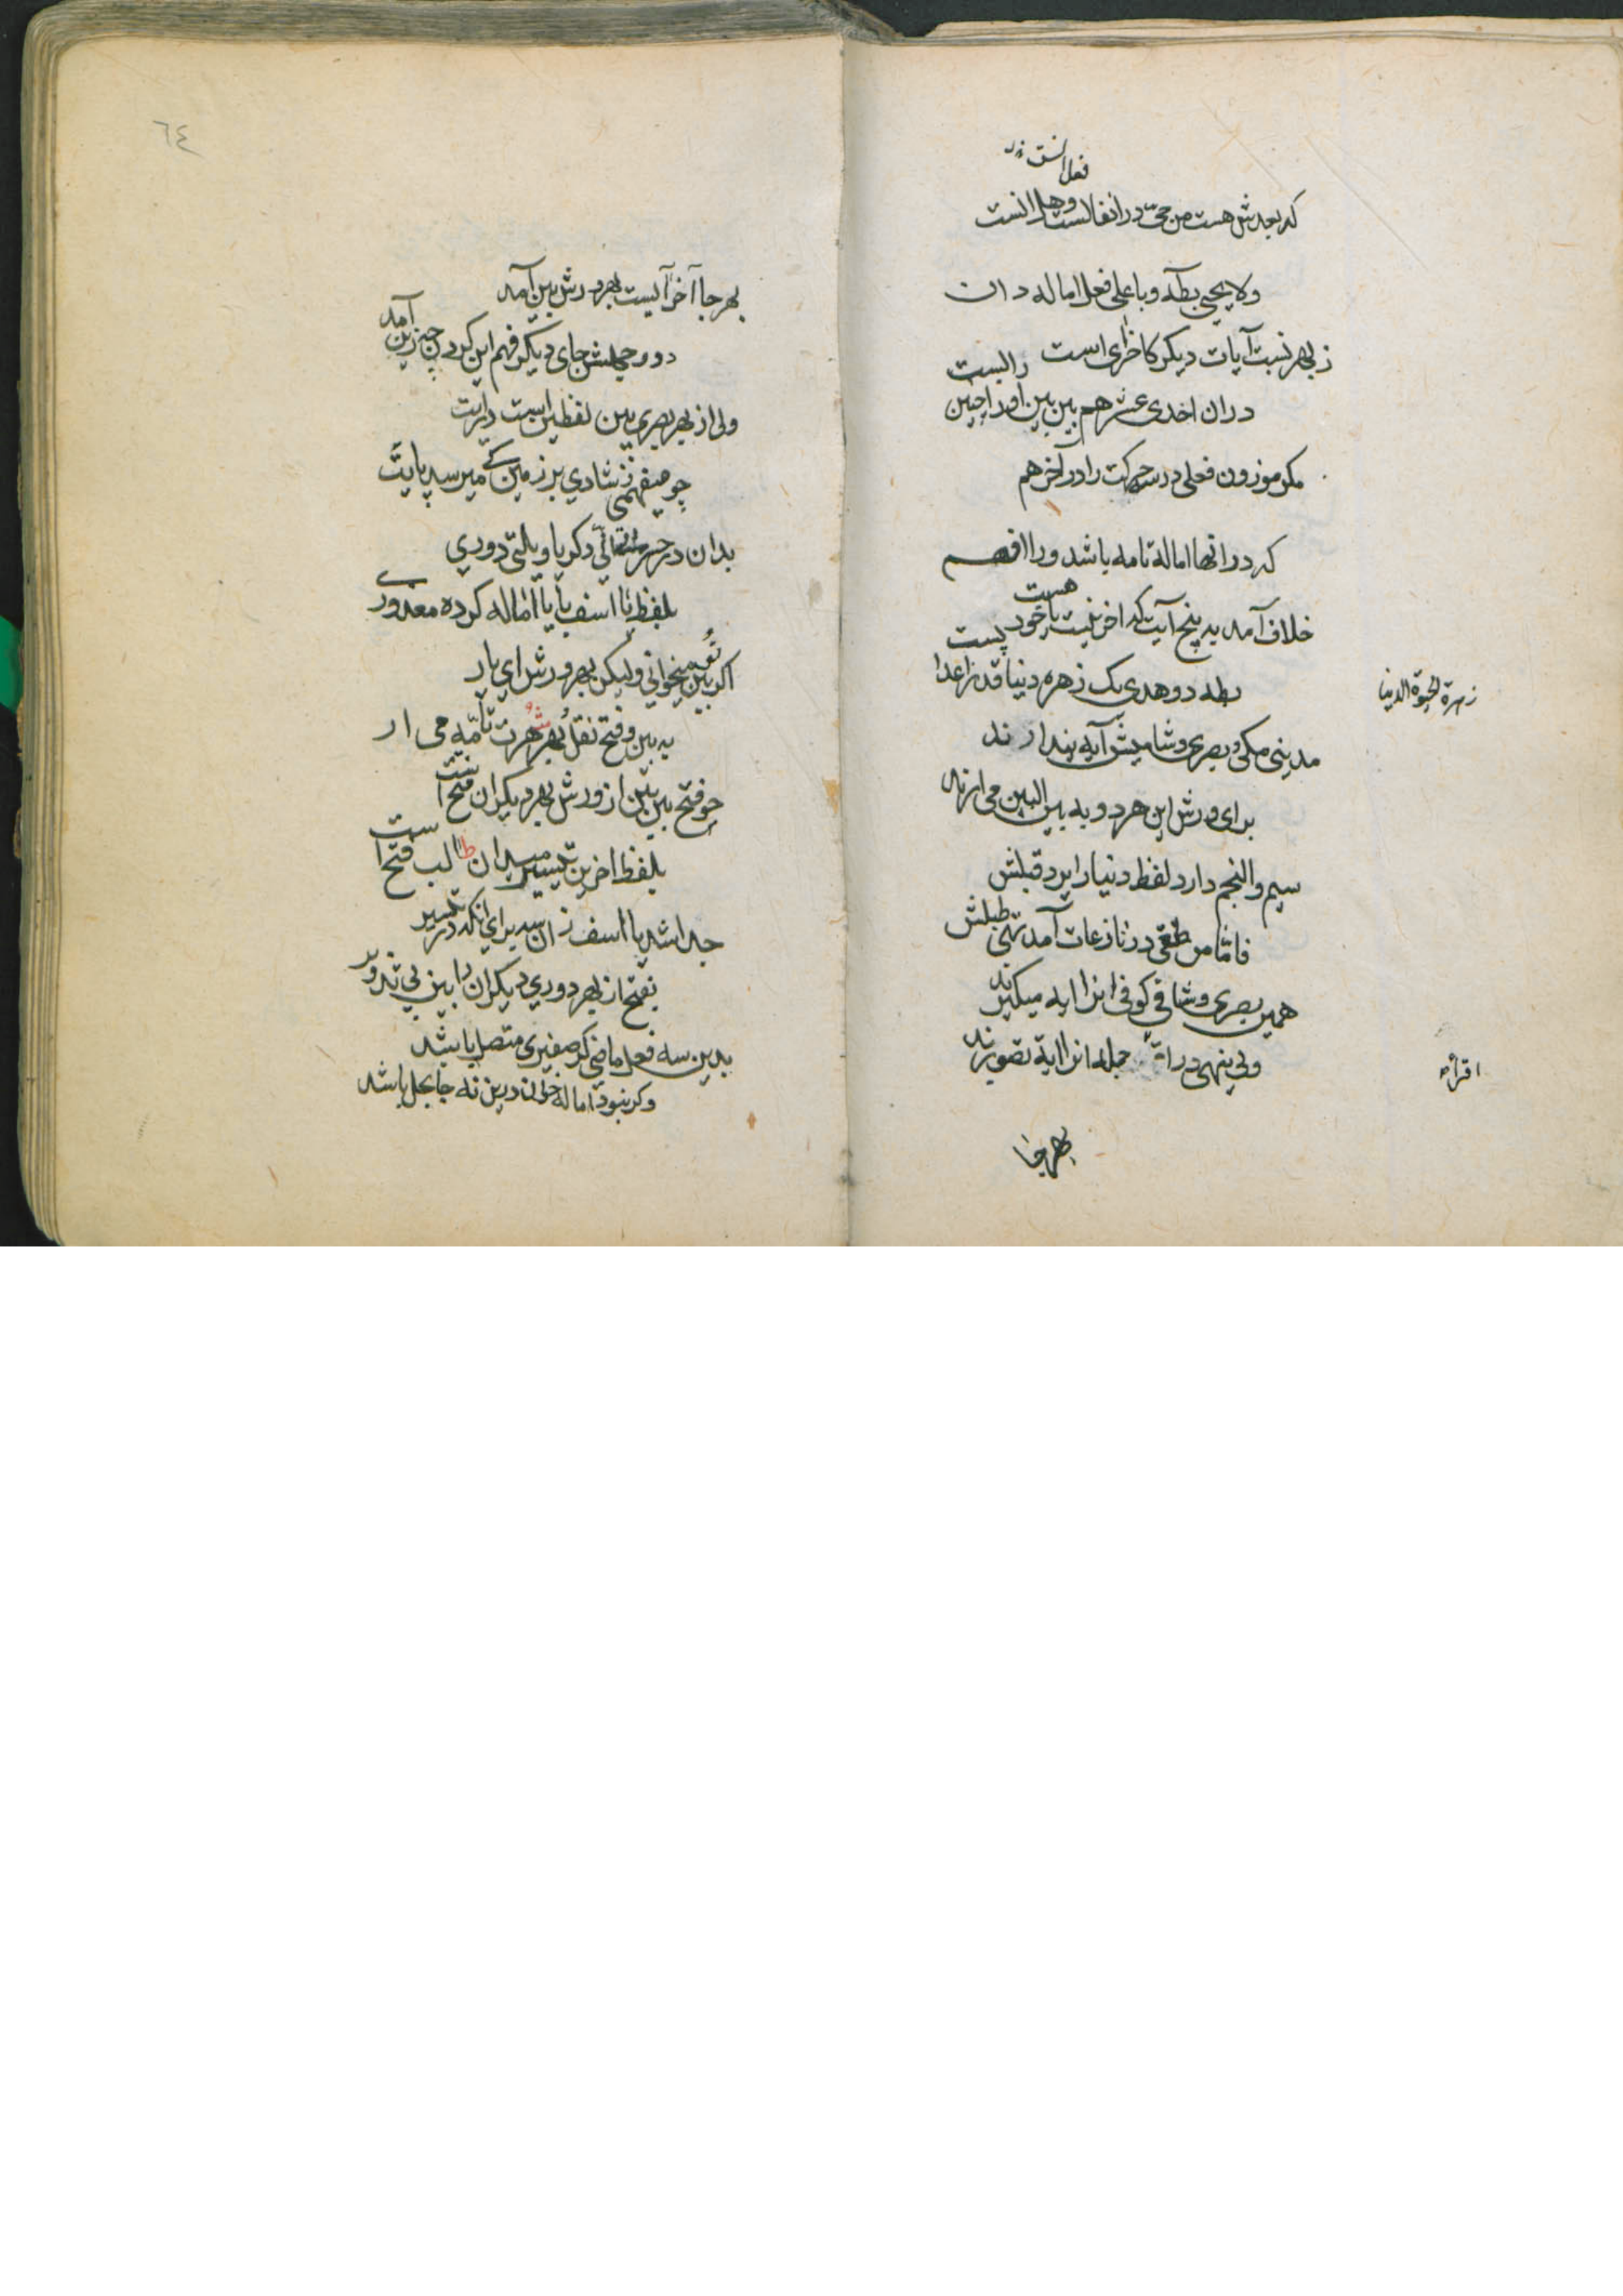 که بعدش هست من حیّ در انفالست وهل انست
فعل انست
ولا یحیی بطه وبا علی فعل اماله دان
ز بهر نسبت آیات دیکر کاخرای است رالیست
دران احدی عشر هم بین بین اورا چنین
مکر موزون فعلی در سه حرکت را در آخر هم
که در انها اماله تامه باشد ورا افهم
خلاف آمد به پنج آیت که اخر نیست یا خود هست
بطه دو هدی یک زهره دنیا قد ز اعدا
زهرة الحیوة الدنیا
مدینی مکی و بصری و شامیش آیه پندارند
برای ورش این هر دو به بین البین می ارند
سیم والنجم دارد لفظ دنیا را یرد قبلش
فاما من طغی در نازعات آمد
همین بصری و شامی کوفی انرا ایه میکیرند
ولی ینهی در اقرأ جمله انرا ایة تصویرند
اقرأ
بهر جا
٦٤
بهر جا آخر آیست بهر ورش بین آمد
دو و جهش جای دیکر فهم این کردن چنین آمد
ولی از بهر بصری بین لفظین است
چو میفهمی ز شادی بر زمین کے میرسد پایت
بدان در حسرتی انّی دکر یا ویلتی دوری
بلفظ یا اسفی با یا اماله کرده معذوری
اکر بین میخوانی ولیکن بهر ورش ای یار
به بین و فتح نقل بهر شهرت تامه می ار
چو فتح بین بین از ورش بهر دیکران فتح است
بلفظ اخرین تیسیر میدان طالب فتح است
جدا شد یا اسف زان سه برای انکه در تیسیر
بفتح از بهر دوری دیکران را بین بی تذویر
بدین سه فعل ماضی کر صغیری متصل باشد
وکر نبود اماله خواندین نه جا بحل باشد